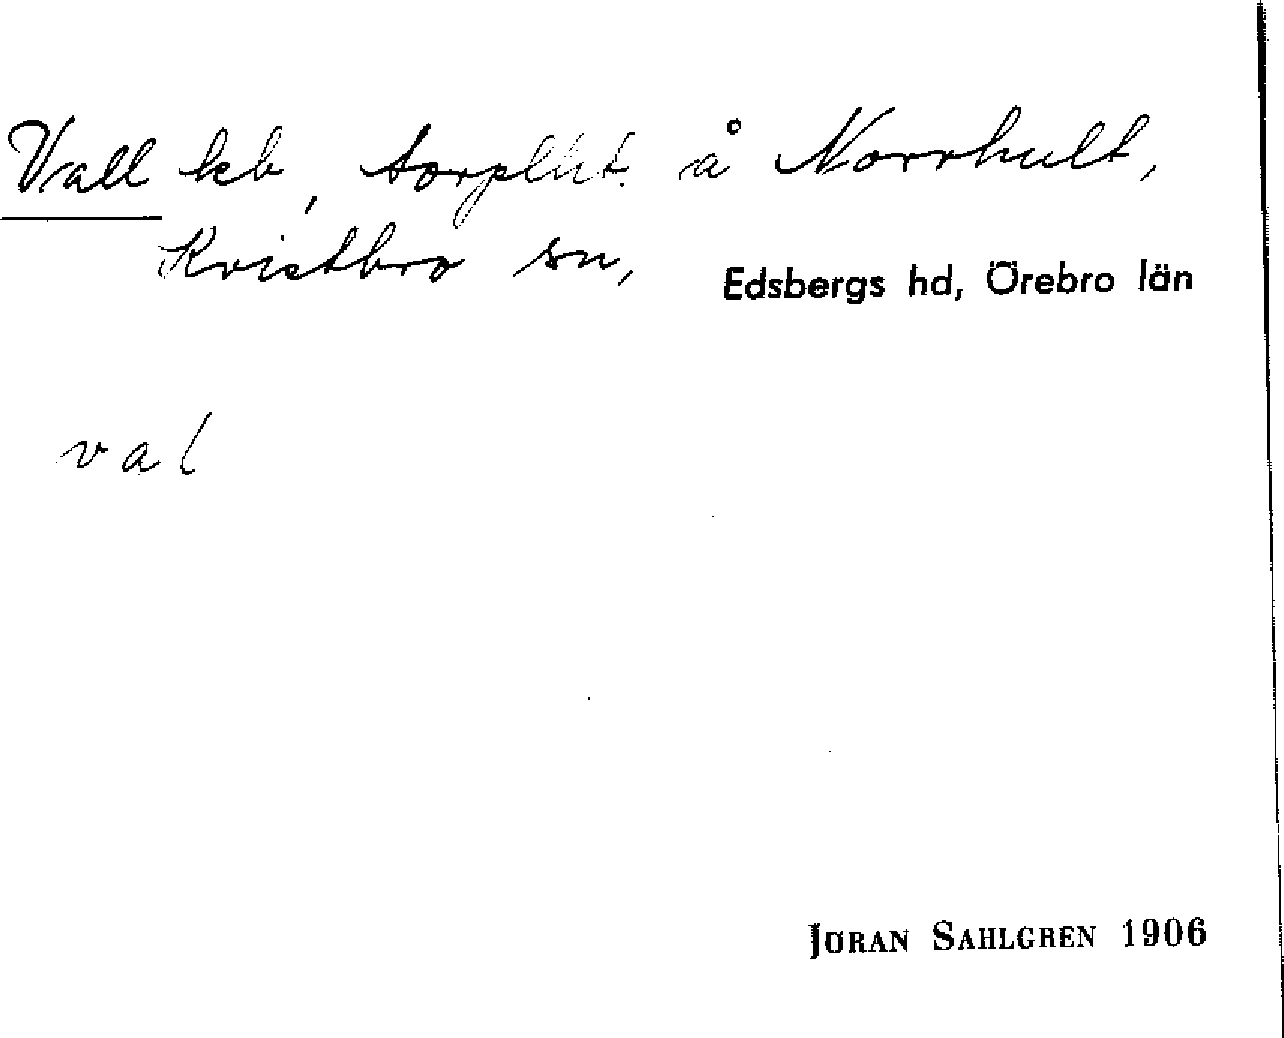 Vall kb, torplht. å Norrhult,
Kvistbro sn, Edsbergs hd, Örebro län
val
JÖRAN SAHLGREN 1906